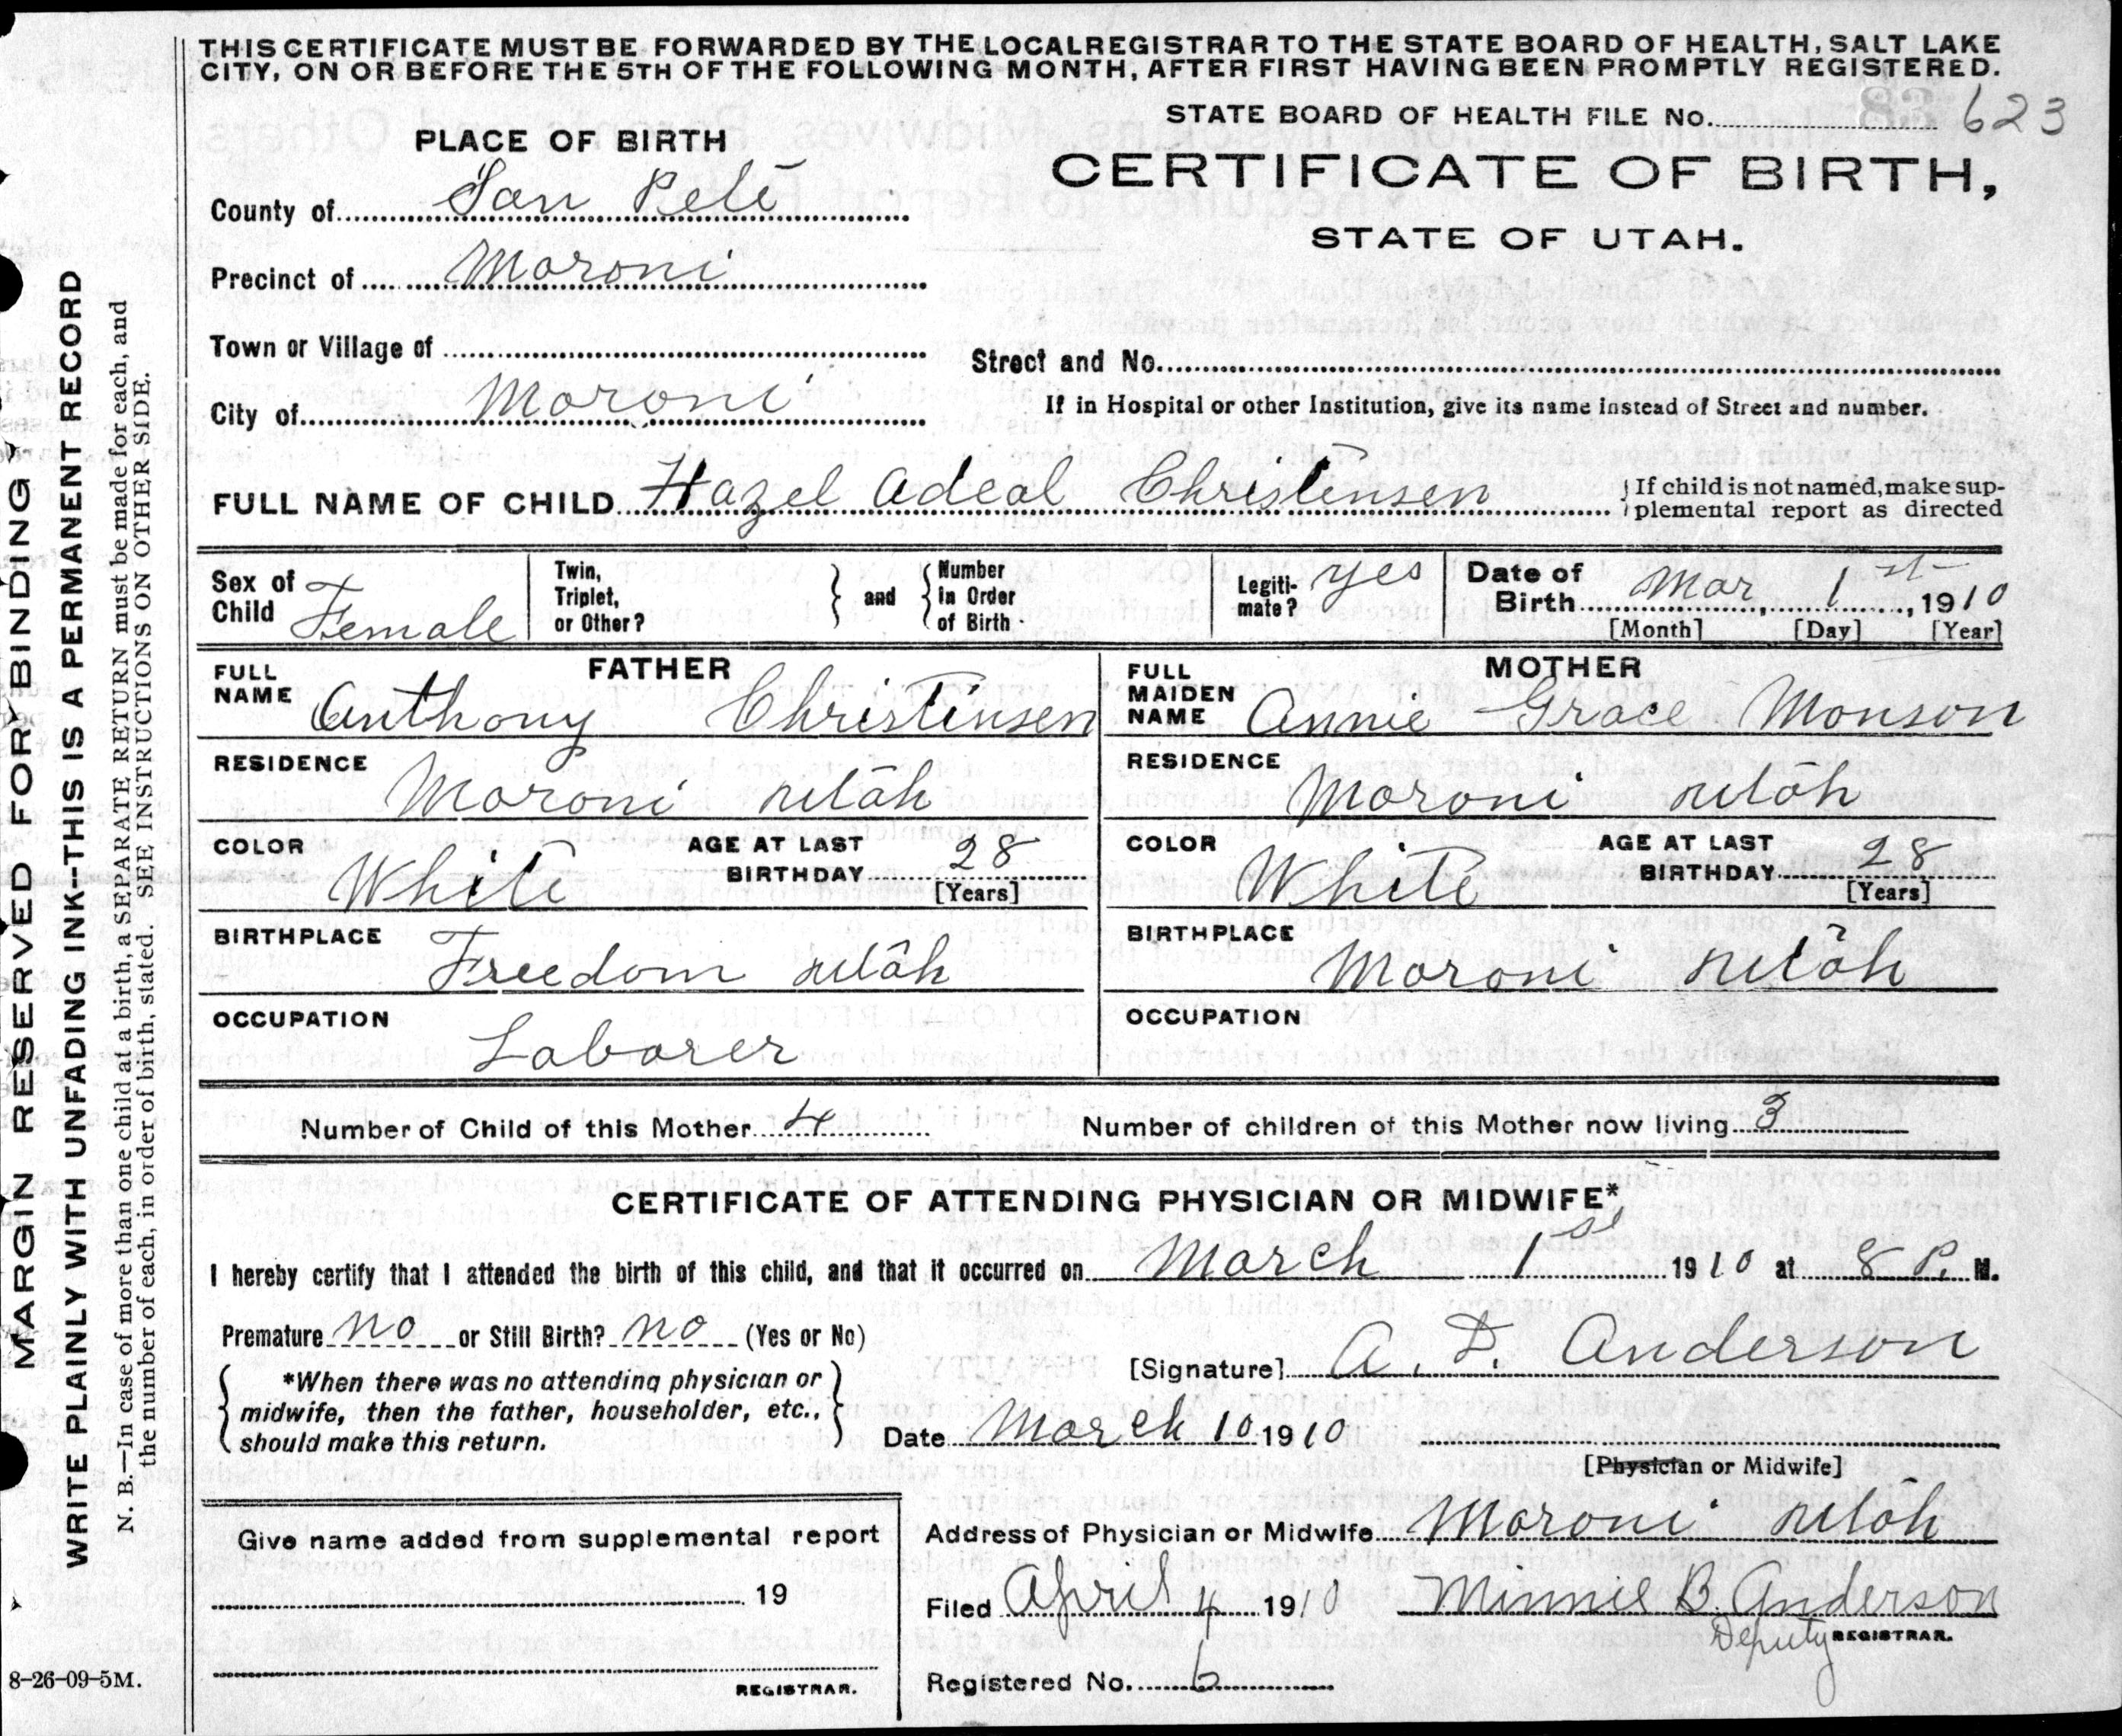 THIS CERTIFICATE MUST BE FORWARDED BY THE LOCAL REGISTRAR TO THE STATE BOARD OF HEALTH, SALT LAKE
CITY, ON OR BEFORE THE 5TH OF THE FOLLOWING MONTH, AFTER FIRST HAVING BEEN PROMPTLY REGISTERED.
STATE BOARD OF HEALTH FILE No. 623
PLACE OF BIRTH
CERTIFICATE OF BIRTH,
STATE OF UTAH.
County of San Pete
Precinct of Moroni
Town or Village of
Street and No.
City of Moroni
If in Hospital or other Institution, give its name instead of Street and number.
FULL NAME OF CHILD Hazel Adeal Christensen
If child is not named, make sup-
plemental report as directed
Sex of Child Female
Twin, Triplet, or Other?
and
Number in Order of Birth
Legiti-mate? yes
Date of Birth Mar, 1st, 1910
[Month] [Day] [Year]
FATHER
FULL NAME Anthony Christensen
MOTHER
FULL MAIDEN NAME Annie Grace Monson
RESIDENCE Moroni Utah
RESIDENCE Moroni Utah
COLOR White AGE AT LAST BIRTHDAY 28 [Years]
COLOR White AGE AT LAST BIRTHDAY 28 [Years]
BIRTHPLACE Freedom Utah
BIRTHPLACE Moroni Utah
OCCUPATION Laborer
OCCUPATION
Number of Child of this Mother 4
Number of children of this Mother now living 3
CERTIFICATE OF ATTENDING PHYSICIAN OR MIDWIFE*
I hereby certify that I attended the birth of this child, and that it occurred on March 1st 1910 at 8 P. M.
Premature no or Still Birth? no (Yes or No)
[Signature] A. D. Anderson
*When there was no attending physician or
midwife, then the father, householder, etc.,
should make this return.
Date March 10 1910
[Physician or Midwife]
Address of Physician or Midwife Moroni Utah
Give name added from supplemental report
19
REGISTRAR.
Filed April 4 1910 Minnie B. Anderson
Deputy REGISTRAR.
Registered No. 6
8-26-09-5M.
MARGIN RESERVED FOR BINDING
WRITE PLAINLY WITH UNFADING INK--THIS IS A PERMANENT RECORD
N. B.—In case of more than one child at a birth, a SEPARATE RETURN must be made for each, and
the number of each, in order of birth, stated. SEE INSTRUCTIONS ON OTHER SIDE.